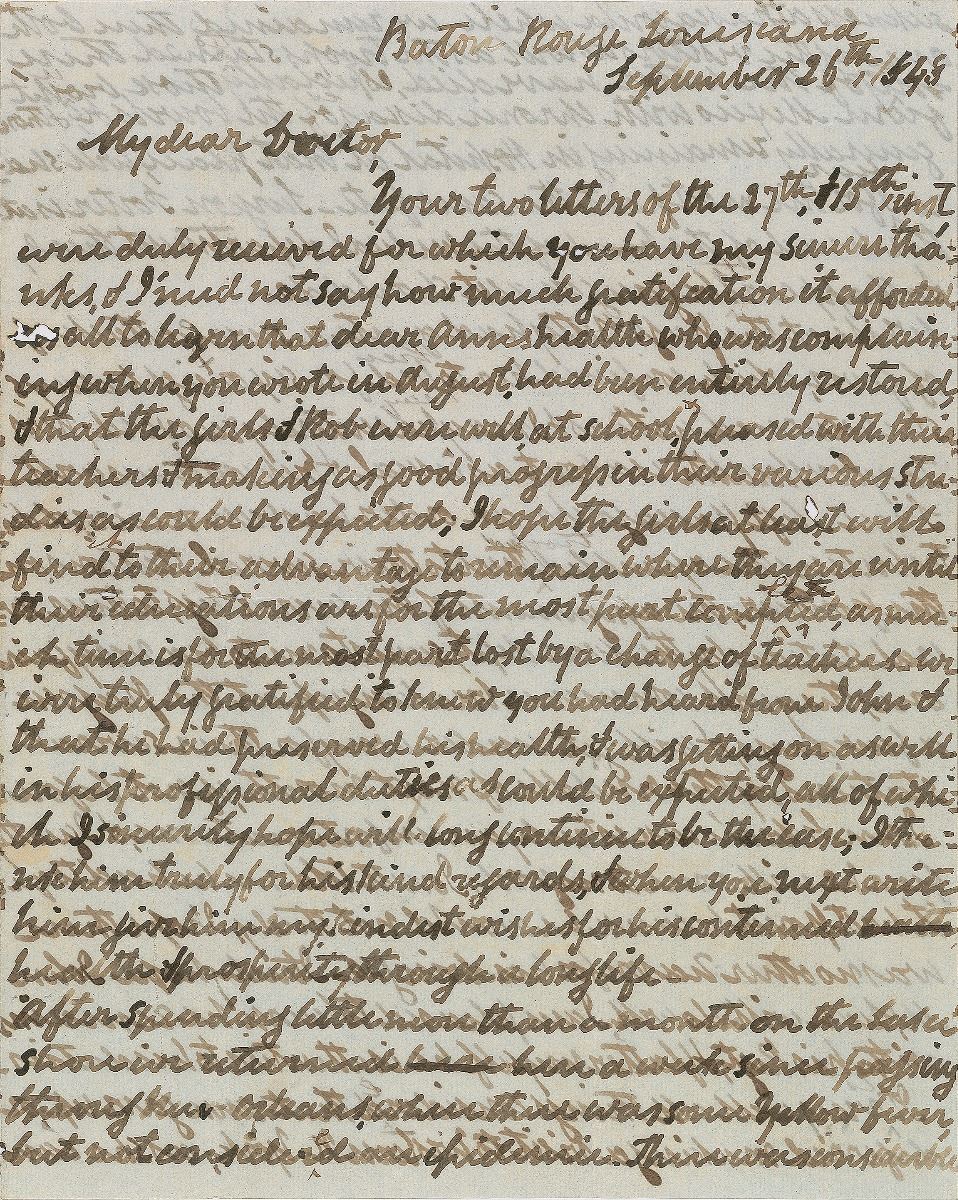 Baton Rouge Louisiana
September 26th, 1848
My dear Doctor,
Your two letters of the 27th, & 15th, inst
were duly received for which you have my sincere tha-
nks, & I need not say how much gratification it afforded
all to learn that dear Ann's health who was complain-
ing when you wrote in August, had been entirely restored,
& that the girls & Rob were well, at school, pleased with their
teachers & making as good progress in their various stu-
dies as could be expected; I hope the girls at least will
find to their advantage to remain where they are until
their educations are for the most part completed, as mu-
ch time is for the most part lost by a change of teachers. We
were truly gratified to know you had heard from John &
that he had preserved his health, & was getting on as well
in his professional duties as could be expected, all of whi-
ch I sincerely hope will long continue to be the case; I tha-
nk him truly for his kind regards, & when you next write
him give him my kindest wishes for his continued
health & prosperity through a long life
After spending little more than a month on the Lake
shore we returned here a week since passing
through New Orleans, when there was some Yellow fever,
but not considered an epidemic. There was considerable